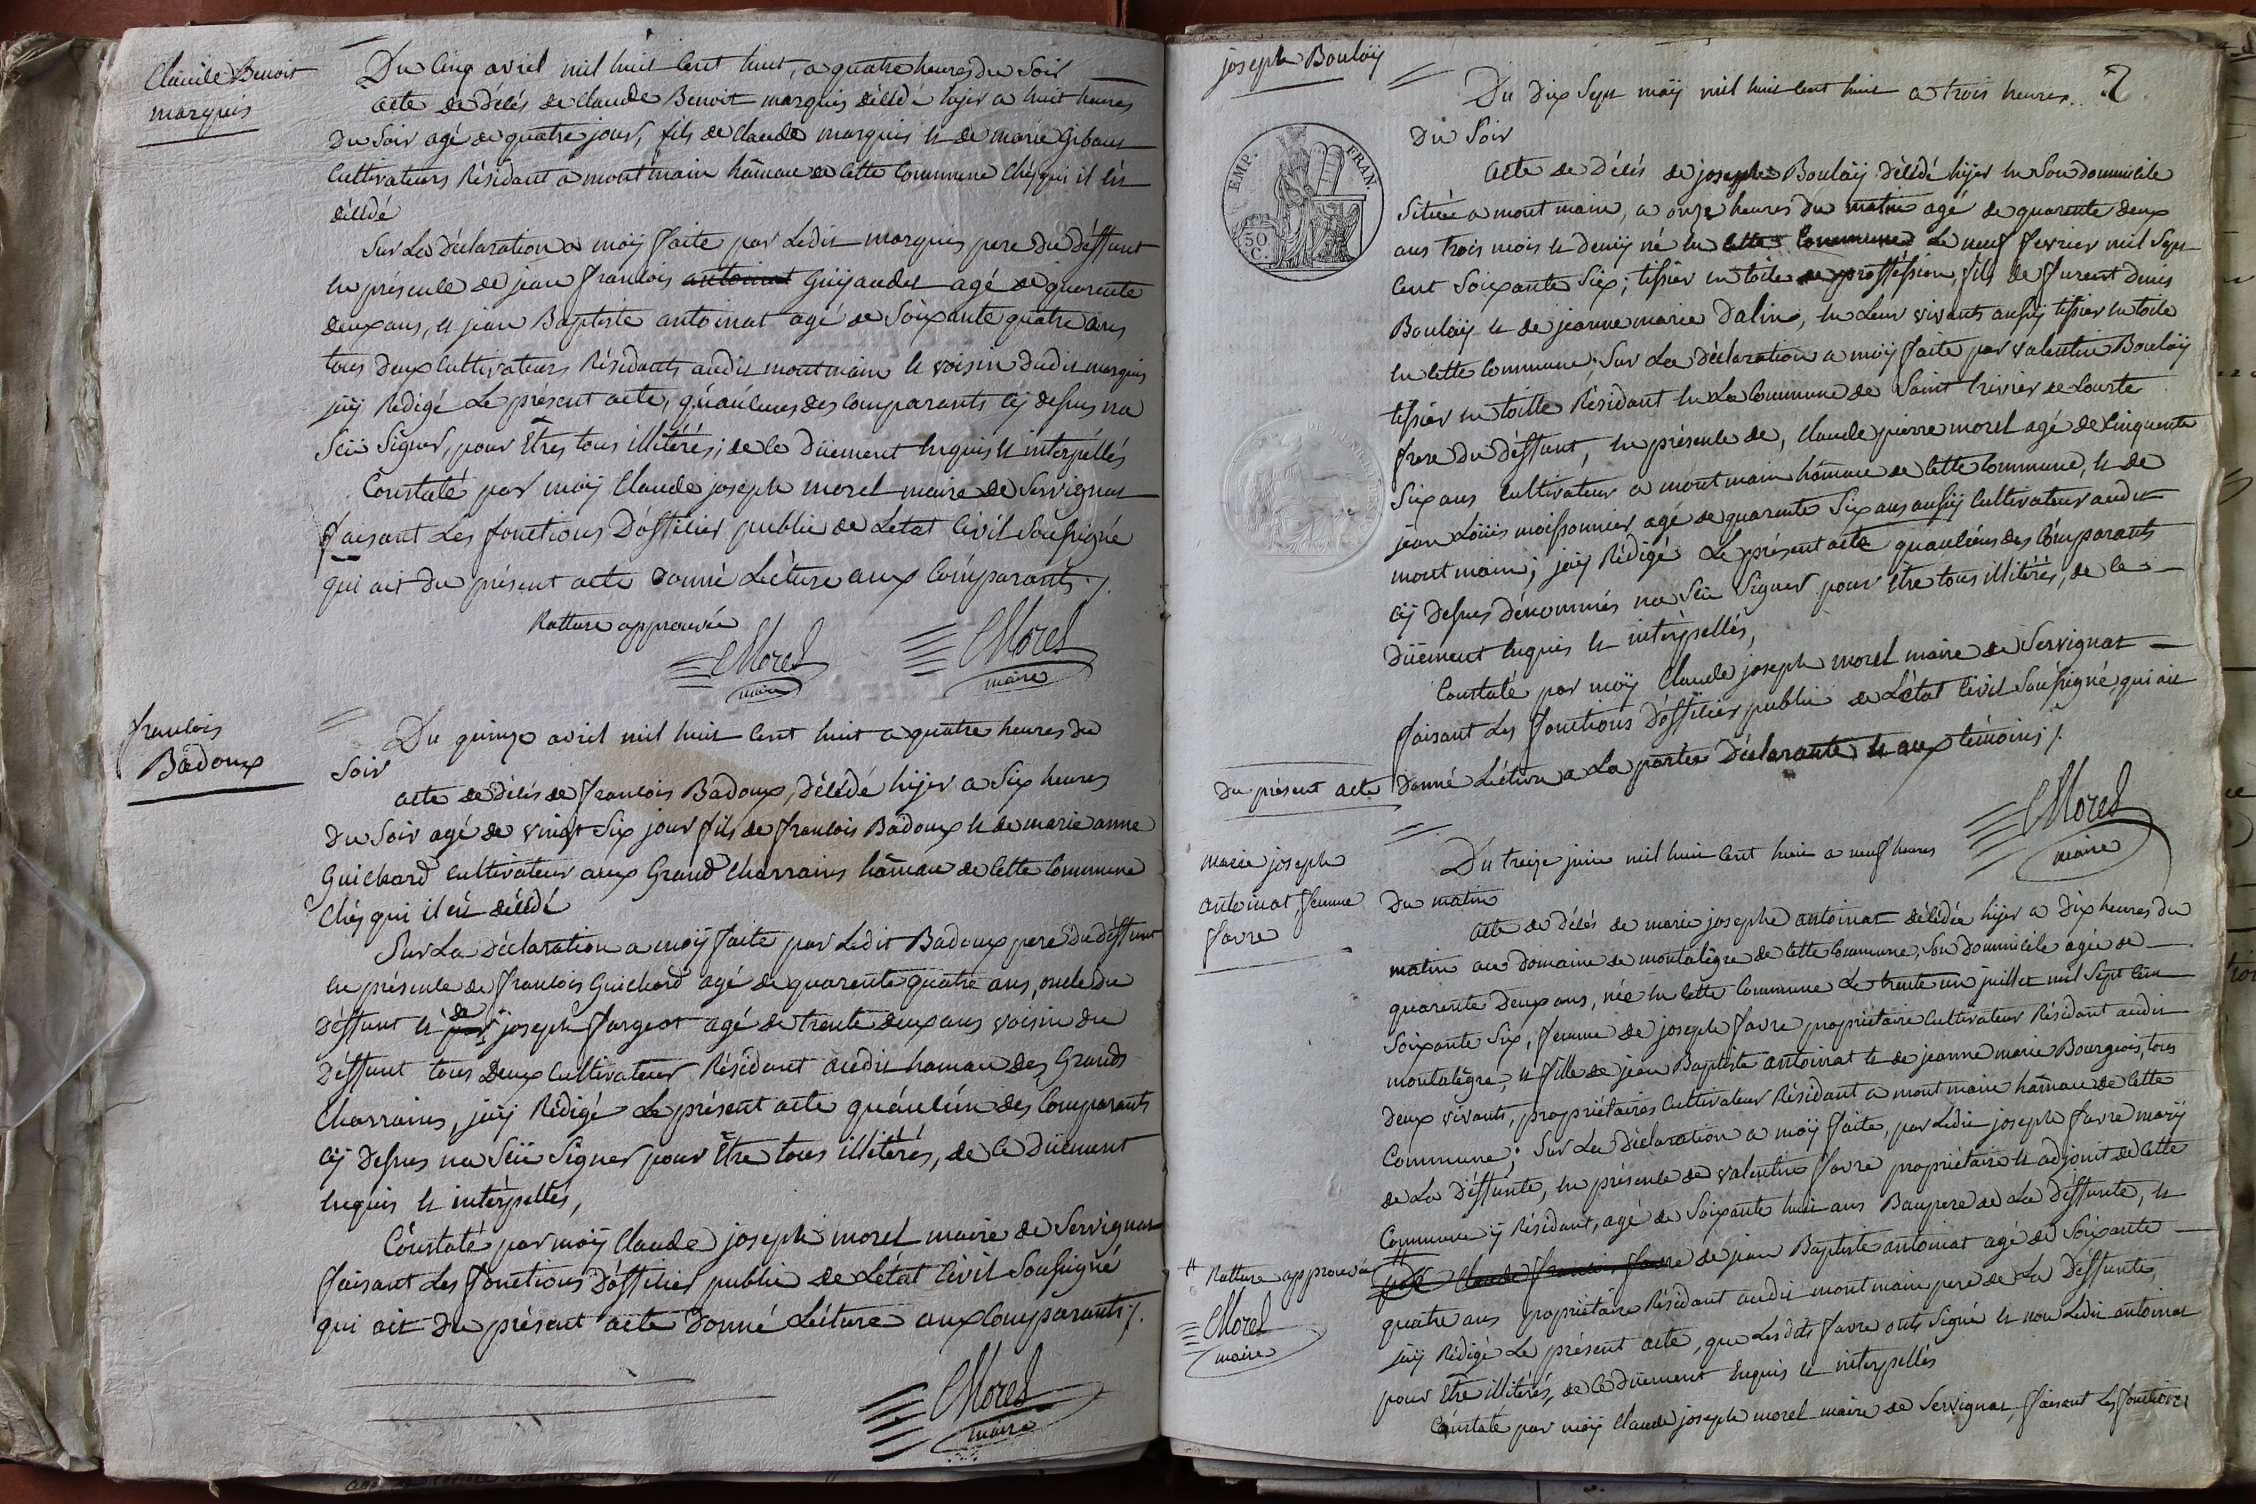 Claude Benoit
marquis
Du Cinq avril mil huit Cent huit, a quatre heures du Soir
acte de délés de Claude Benoit marquis délédé hyer a huit heures
Du Soir agé de quatre jours, fils de Claude marquis et de marie Gibout
Cultivateurs Résidant a montmain hâmau de Cette Commune Chés qui il èn
délédé
Sur La Déclaration a moÿ faite par Ledit marquis pere du déffunt
en présence de jean francois antoinat Guÿaudet agé de quarente
deux ans, et jean Baptiste antoinat agé de Soixante quatre ans
tous deux Cultivateurs Résidants audit montmain et voisin dudit marquis
jaÿ Redigé Le présent acte, qu'áulcuns des Comparants Cÿ desus na
Sçü Signer, pour Etres tous illitérés; de Ce Düement enquis et interpéllés
Constaté par moÿ Claude joseph morel maire de Servignat
faisant Les fonctions D'offilier publie de Létat Civil Soussigné
qui ait Du présent acte donné Léture aux Comparants ./.
Ratture approuvée
CMorel
maire
CMorel
maire
francois
Badoux
Du quinze avril mil huit Cent huit a quatre heures du
Soir
acte de Délés de francois Badoux, Délédé hijer a Six heures
Du Soir agé de vingt Six jour fils de francois Badoux et de marie anne
Guichard Cultivateur aux Grand Charrains hâmau de Cette Commune
Chés qui il èn délédé
Sur La Déclaration a moÿ faite par Ledit Badoux pere du déffunt
en présence de francois Guichard agé de quarente quatre ans, oncle du
Déffunt et par de joseph fargeot agé de trente deux ans voisin du
Déffunt tous Deux Cultivateur Résidant audit hamau des Grands
Charrains, jaÿ Rédigé Le présent acte quáulcun des Comparants
Cÿ Desus na Sçü Signer pour Etre tous illitérés, de Ce Düement
enquis et intérpellés,
Constaté par moÿ Claude joseph morel maire de Servignat
faisant Les fonctions D'offilier publie de Létat Civil Soussigné
qui ait Du présent acte Donné Léture aux Comparants ./.
CMorel
maire
joseph Boulaÿ
2
Du Dix Sept maÿ mil huit Cent huit a trois heures
Du Soir
EMP. FRAN.
50
C.
acte de Délés de joseph Boulaÿ Délédé hijer en Son domicile
Situé a mont main, a onze heures du matin agé de quarente deux
ans trois mois et demÿ né en Cette Commune Le neuf fevrier mil Sept
Cent Soixante Six; tissier en toile de proffession, fils de furent denis
Boulaÿ et de jeanne marie Dalin, en Leur vivants aussÿ tissier en toile
en Cette Commune; Sur La Déclaration a moÿ faite par valentin Boulaÿ
tissier en toille Résidant en La Commune de Saint trivier de Courte
frere du Déffunt, en présence de, Claude pierre morel agé de Cinquente
Six ans Cultivateur a montmain hâmau de Cette Commune, et de
jean Loüis moissonnier agé de quarente Six ans aussÿ Cultivateur audit
montmain; jaÿ Rédigé Le présent acte quaulcuns des Comparants
Cÿ Desus dénommés na Sçü Signer pour Etre tous illitérés, de Ce
Düement enquis et intérpellés,
Constaté par moÿ Claude joseph morel maire de Servignat
faisant Les fonctions D'offilier publie de Létat Civil Soussigné, qui ait
Du présent acte Donné Léture a La parties Déclarante et aux témoins ./.
CMorel
maire
marie joseph
antoinat, femme
favre
Du treize juin mil huit Cent huit a neuf heures
Du matin
acte de Délés de marie josephe antoinat délédée hijer a Dix heures du
matin au domaine de montalègre de Cette Commune, Son Domicile agée de
quarente Deux ans, née en Cette Commune Le trente un juillet mil Sept Cent
Soixante Six, femme de joseph favre propriétaire Cultivateur Résidant audit
montalègre, et fille de jean Baptiste antoinat et de jeanne marie Bourgeois, tous
Deux vivants, propriétaires Cultivateur Résidant a mont main hâmau de Cette
Commune; Sur La Déclaration a moÿ faite, par Ledit joseph favre marÿ
de La Déffunte, en présence de valentin favre propriétaire et adjoint de Cette
Commune ÿ Résidant, agé de Soixante huit ans Beaupere de La Déffunte, et
Claude francois favre de jean Baptiste antoinat agé de Soixante
quatre ans propriétaire Résidant audit montmain pere de La Deffunte,
jaÿ Rédigé Le présent acte, que Les dits favre onts Signé et non Ledit antoinat
pour Etre illitérés, de Ce Düement Enquis et intérpellés
Constaté par moÿ Claude joseph morel maire de Servignat, faisant Les fonctions
Ratture approuvée
CMorel
maire